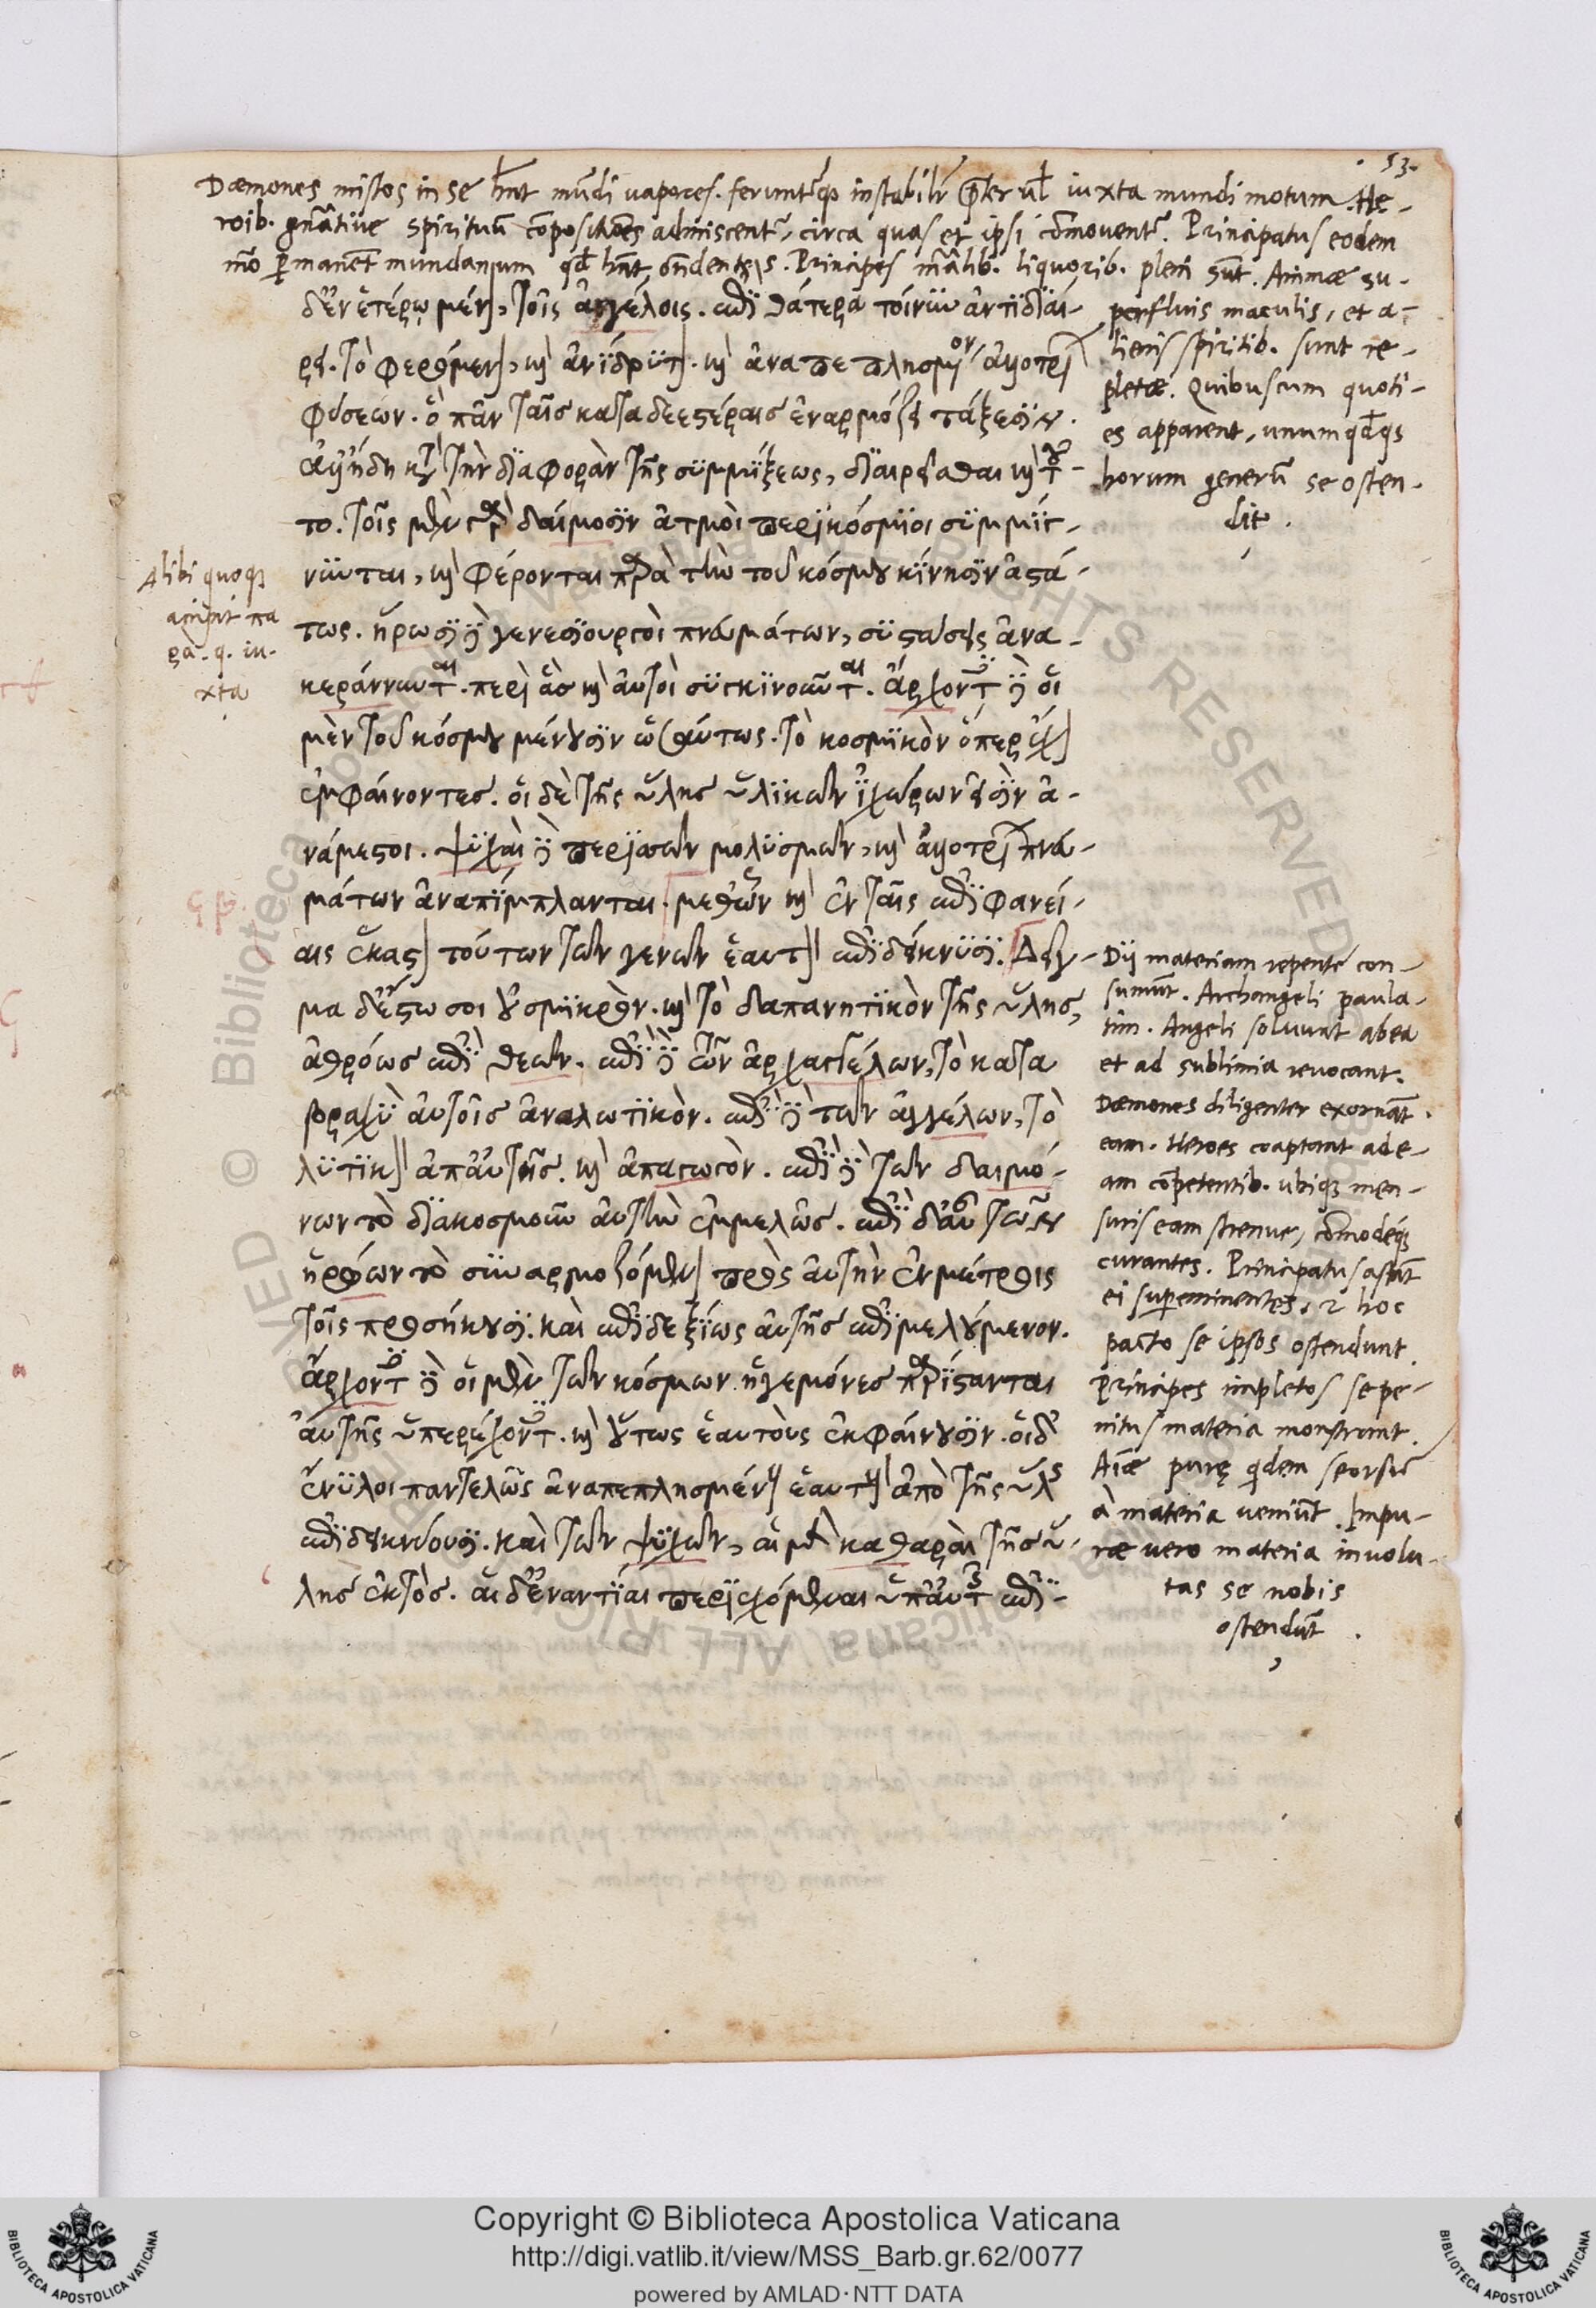 53.
Dæmones mistos in se hñt mũdi uapores. ferunturq; instabilr̃ p̃ter ul̃ iuxta mundi motum. He-
roib. gñatiue spirituũ cõpositiões admiscentr̃, circa quas et ipsi cõmouentr̃. Principatus eodem
mõ p̃manẽt mundanum qd̃ hñt, õndentes. Principes mãlib. liquorib. pleni sũt. Animæ su-
perfluis maculis, et a-
lienis spiritib. sunt re-
pletæ. Quibuscum quoti-
es apparent, unumqd̃q;
horum generũ se osten-
dit.
δ᾽ἐν ἑτέρῳ μένον, τοῖς ἀγγέλοις. ἐπὶ θάτερα τοίνυν ἀντιδιαι-
ρεῖ. τὸ φερόμενον, καὶ ἀνίδρυτον. καὶ ἀναπεπλησμένον ἀλλοτρίων
φύσεων. ὃ πᾶν ταῖς καταδεεστέραις ἐναρμόζει τάξεσιν.
ἀλλ᾽ἤδη κατὰ τὴν διαφορὰν τῆς συμμίξεως, διαιρεῖσθαι καὶ τοῦ-
το. τοῖς μὲν γὰρ δαίμοσιν ἀτμοὶ περικόσμιοι συμμίγ-
νυνται, καὶ φέρονται παρὰ τὴν τοῦ κόσμου κίνησιν ἀστά-
τως. ἥρωσι δὲ γενεσιουργοὶ πνευμάτων, συστάσεις ἀνα-
κεράννυνται. περὶ ἃς καὶ αὐτοὶ συγκινοῦνται. ἄρχοντες δὲ οἱ
μὲν τοῦ κόσμου μένουσιν ὡσαύτως. τὸ κοσμικὸν ὅπερ ἔχουσιν
ἐμφαίνοντες. οἱ δὲ τῆς ὕλης ὑλικῶν ἰχώρων εἰσὶν ἀ-
νάμεστοι. ψυχαὶ δὲ περισσῶν μολυσμῶν, καὶ ἀλλοτρίων πνευ-
μάτων ἀναπίμπλανται. μεθ᾽ὧν καὶ ἐν ταῖς ἐπιφανεί-
αις ἕκαστον τούτων τῶν γενῶν ἑαυτὸ ἐπιδείκνυσι. Δεῖγ-
μα δ᾽ἔστω σοι οὐ σμικρὸν. καὶ τὸ δαπανητικὸν τῆς ὕλης,
ἀθρόως ἐπὶ θεῶν. ἐπὶ δὲ τῶν ἀρχαγγέλων, τὸ κατὰ
βραχὺ αὐτοῖς ἀναλωτικὸν. ἐπὶ δὲ τῶν ἀγγέλων, τὸ
λυτικὸν ἀπ᾽αὐτῆς. καὶ ἀπαγωγὸν. ἐπὶ δὲ τῶν δαιμό-
νων τὸ διακοσμοῦν αὐτὴν ἐμμελῶς. ἐπὶ δ᾽αὖ τῶν
ἡρώων τὸ συναρμοζόμενον πρὸς αὐτὴν ἐν μέτροις
τοῖς προσήκουσι. καὶ ἐπιδεξίως αὐτῆς ἐπιμελούμενον.
ἄρχοντες δὲ οἱ μὲν τῶν κόσμων ἡγεμόνες παρίστανται
αὐτῆς ὑπερέχοντες. καὶ οὕτως ἑαυτοὺς ἐκφαίνουσιν. οἱ δ᾽
ἔνυλοι παντελῶς ἀναπεπλησμένους ἑαυτοὺς ἀπὸ τῆς ὕλης
ἐπιδεικνύουσι. καὶ τῶν ψυχῶν, αἱ μὲν καθαραὶ τῆς ὕ-
λης ἐκτὸς. αἱ δ᾽ἐναντίαι περιεχόμεναι ὑπ᾽αὐτῆς ἐπι-
Alibi quoq;
accipit πα
ρα. q. iu-
xta
Dij materiam repente con-
sumũt. Archangeli paula-
tim. Angeli soluunt abea
et ad sublimia reuocant.
Dæmones diligenter exornãt
eam. Heroes coaptant ad e-
am cõpetentib. ubiq; men-
suris eam strenue, cõmodeq́;
curantes. Principatus astãt
ei supereminentes, & hoc
pacto se ipsos ostendunt.
Principes impletos se pe-
nitus materia monstrant.
Aĩæ purę qidem seorsũ
à materia ueniũt. Impu-
ræ uero materia inuolu-
tas se nobis
ostendũt.